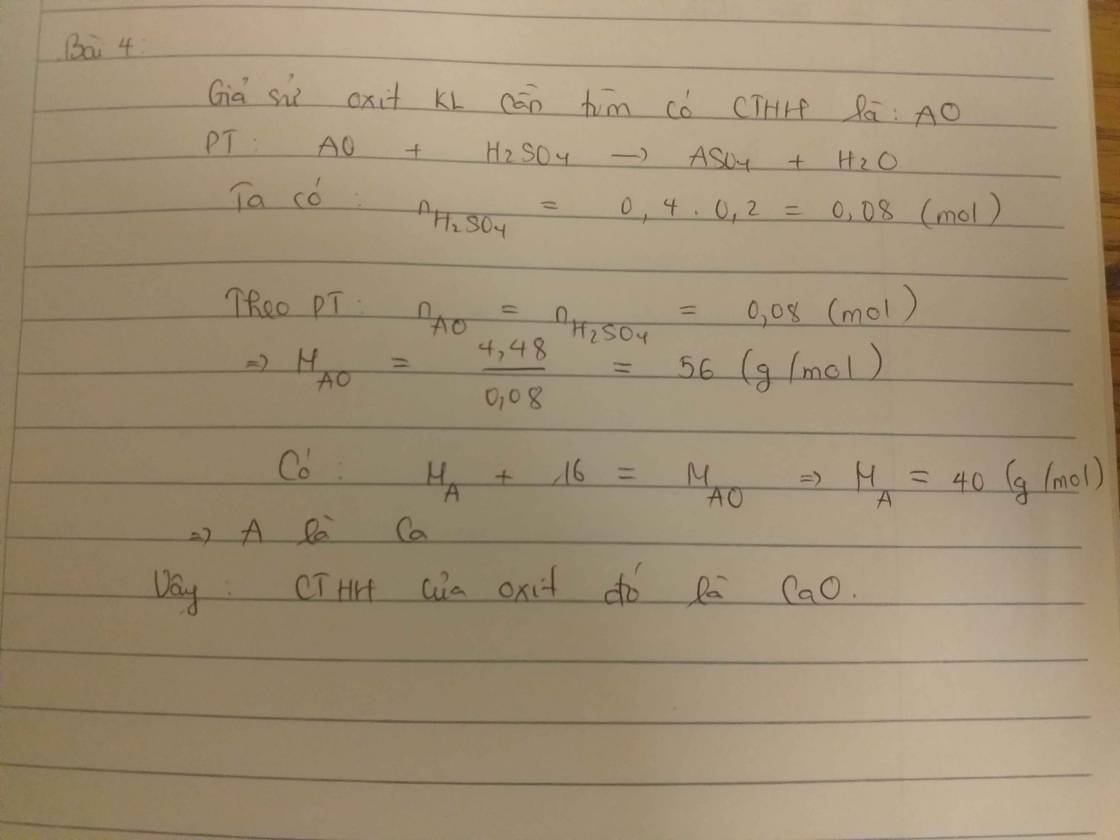 Bài 4:
Giả sử oxit KL cần tìm có CTHH là: AO
PT: AO + H2SO4 → ASO4 + H2O
Ta có: nH2SO4 = 0,4 . 0,2 = 0,08 (mol)
Theo PT: nAO = nH2SO4 = 0,08 (mol)
=> MAO = 4,48/0,08 = 56 (g/mol)
Có: MA + 16 = MAO => MA = 40 (g/mol)
=> A là Ca
Vây: CTHH của oxit đó là CaO.